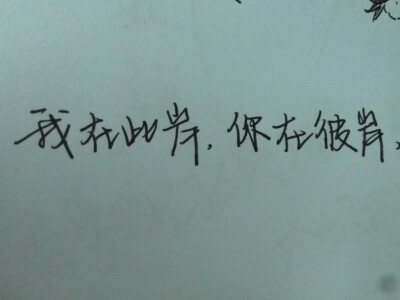 我在此岸，你在彼岸，